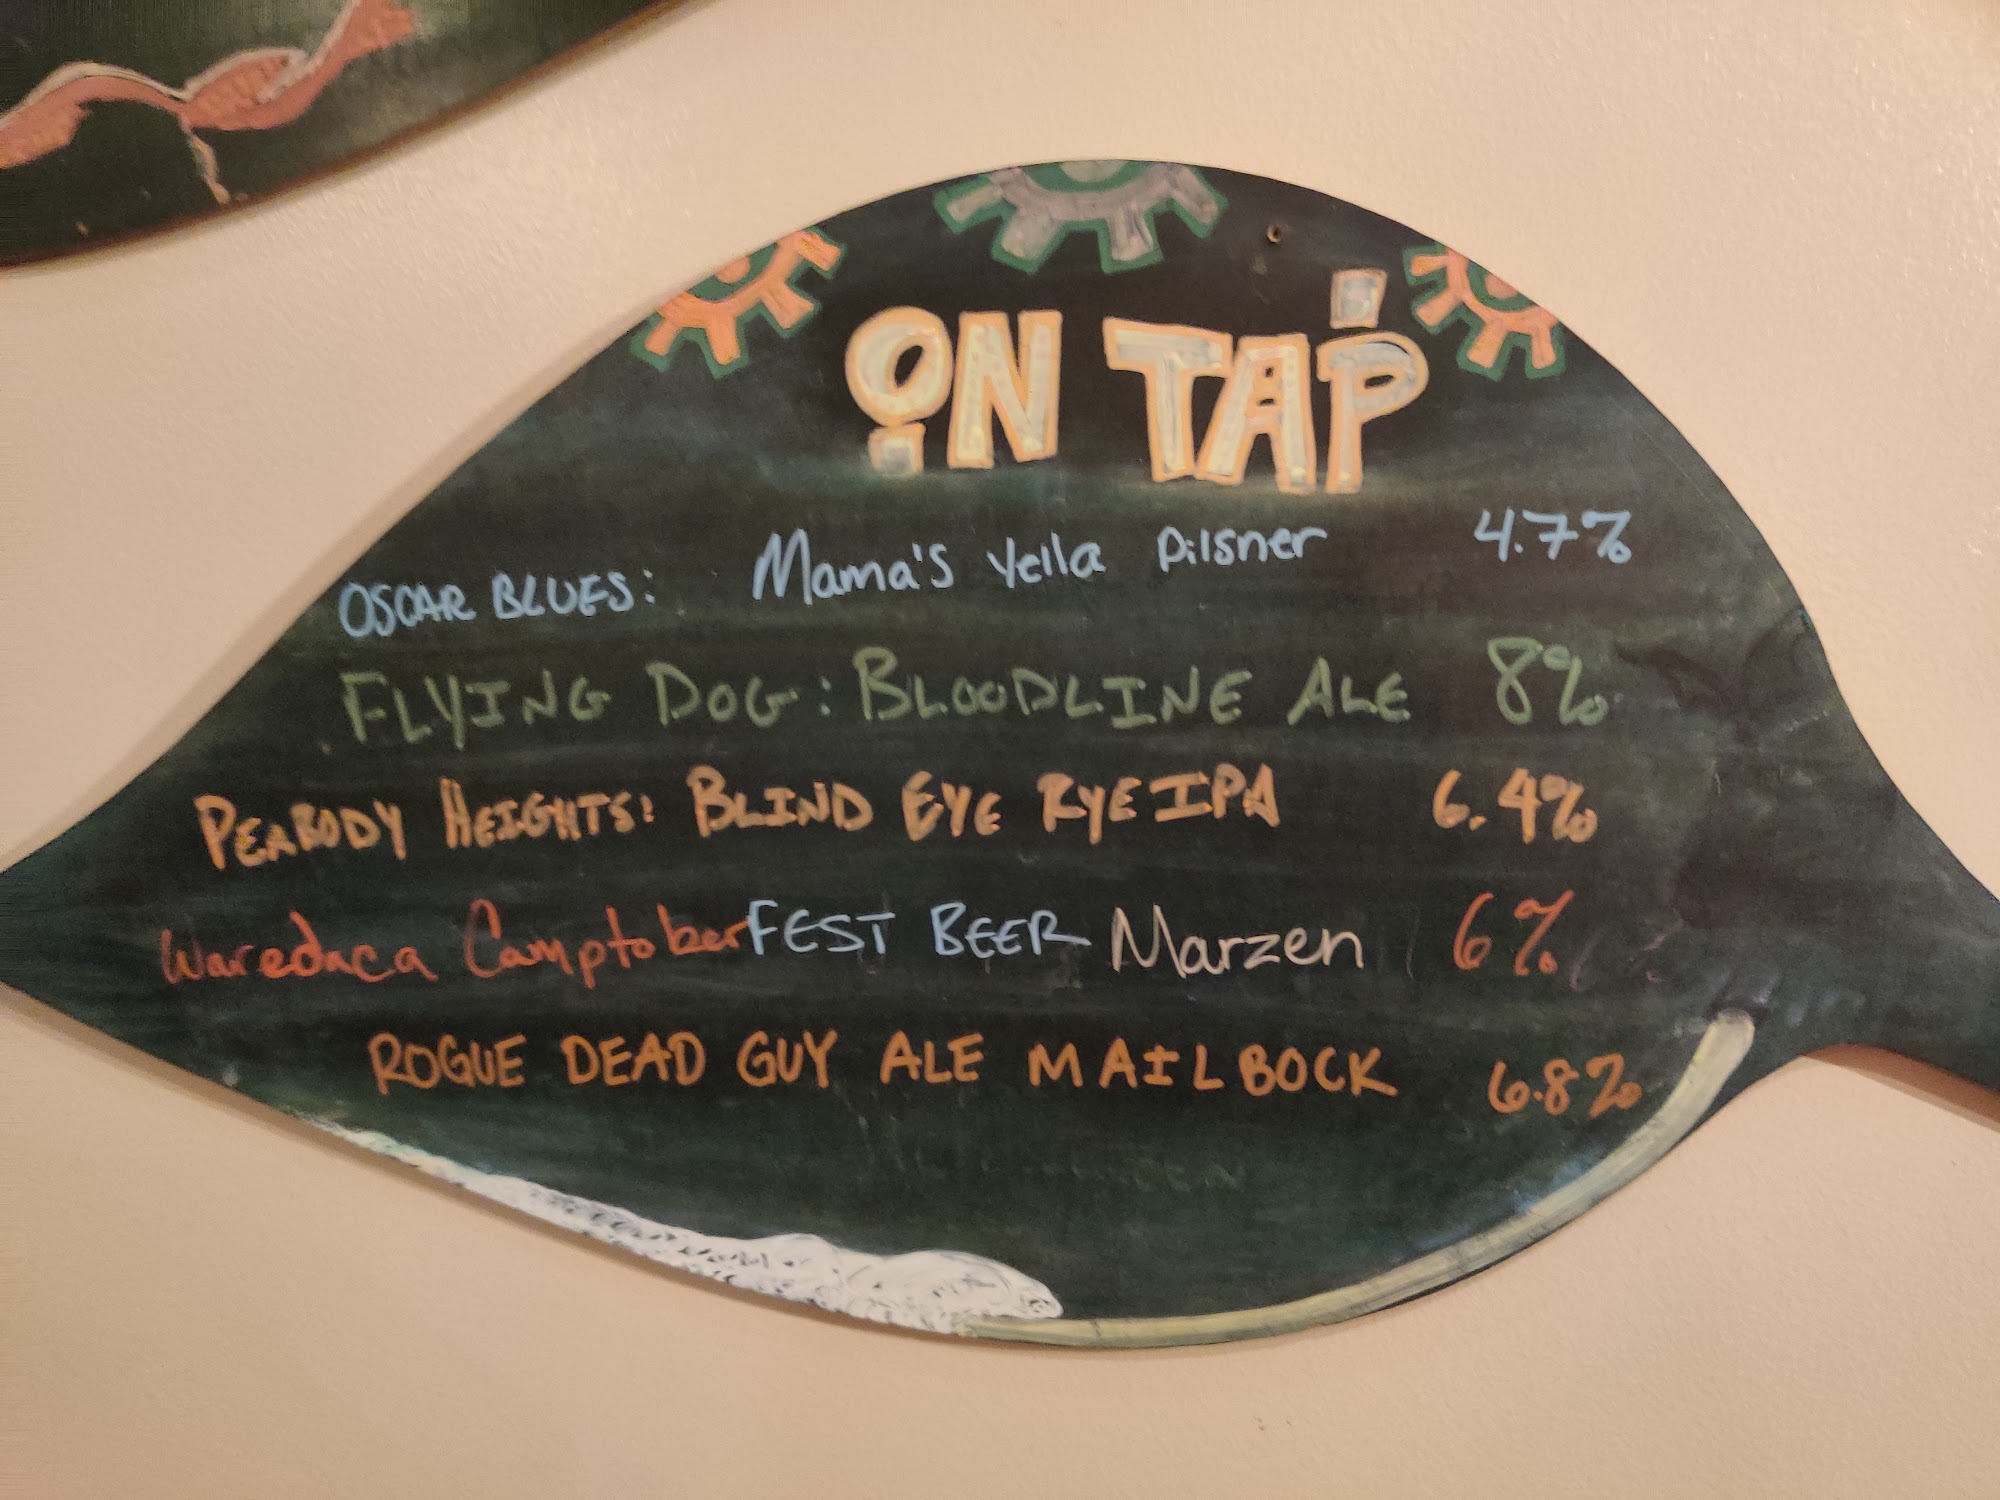 ON TAP
OSCAR BLUES: Mama's Yella Pilsner 4.7%
FLYING DOG: BLOODLINE ALE 8%
PEABODY HEIGHTS: BLIND EYE RYE IPA 6.4%
Waredaca Camptoberfest BEER Marzen 6%
ROGUE DEAD GUY ALE MAILBOCK 6.8%